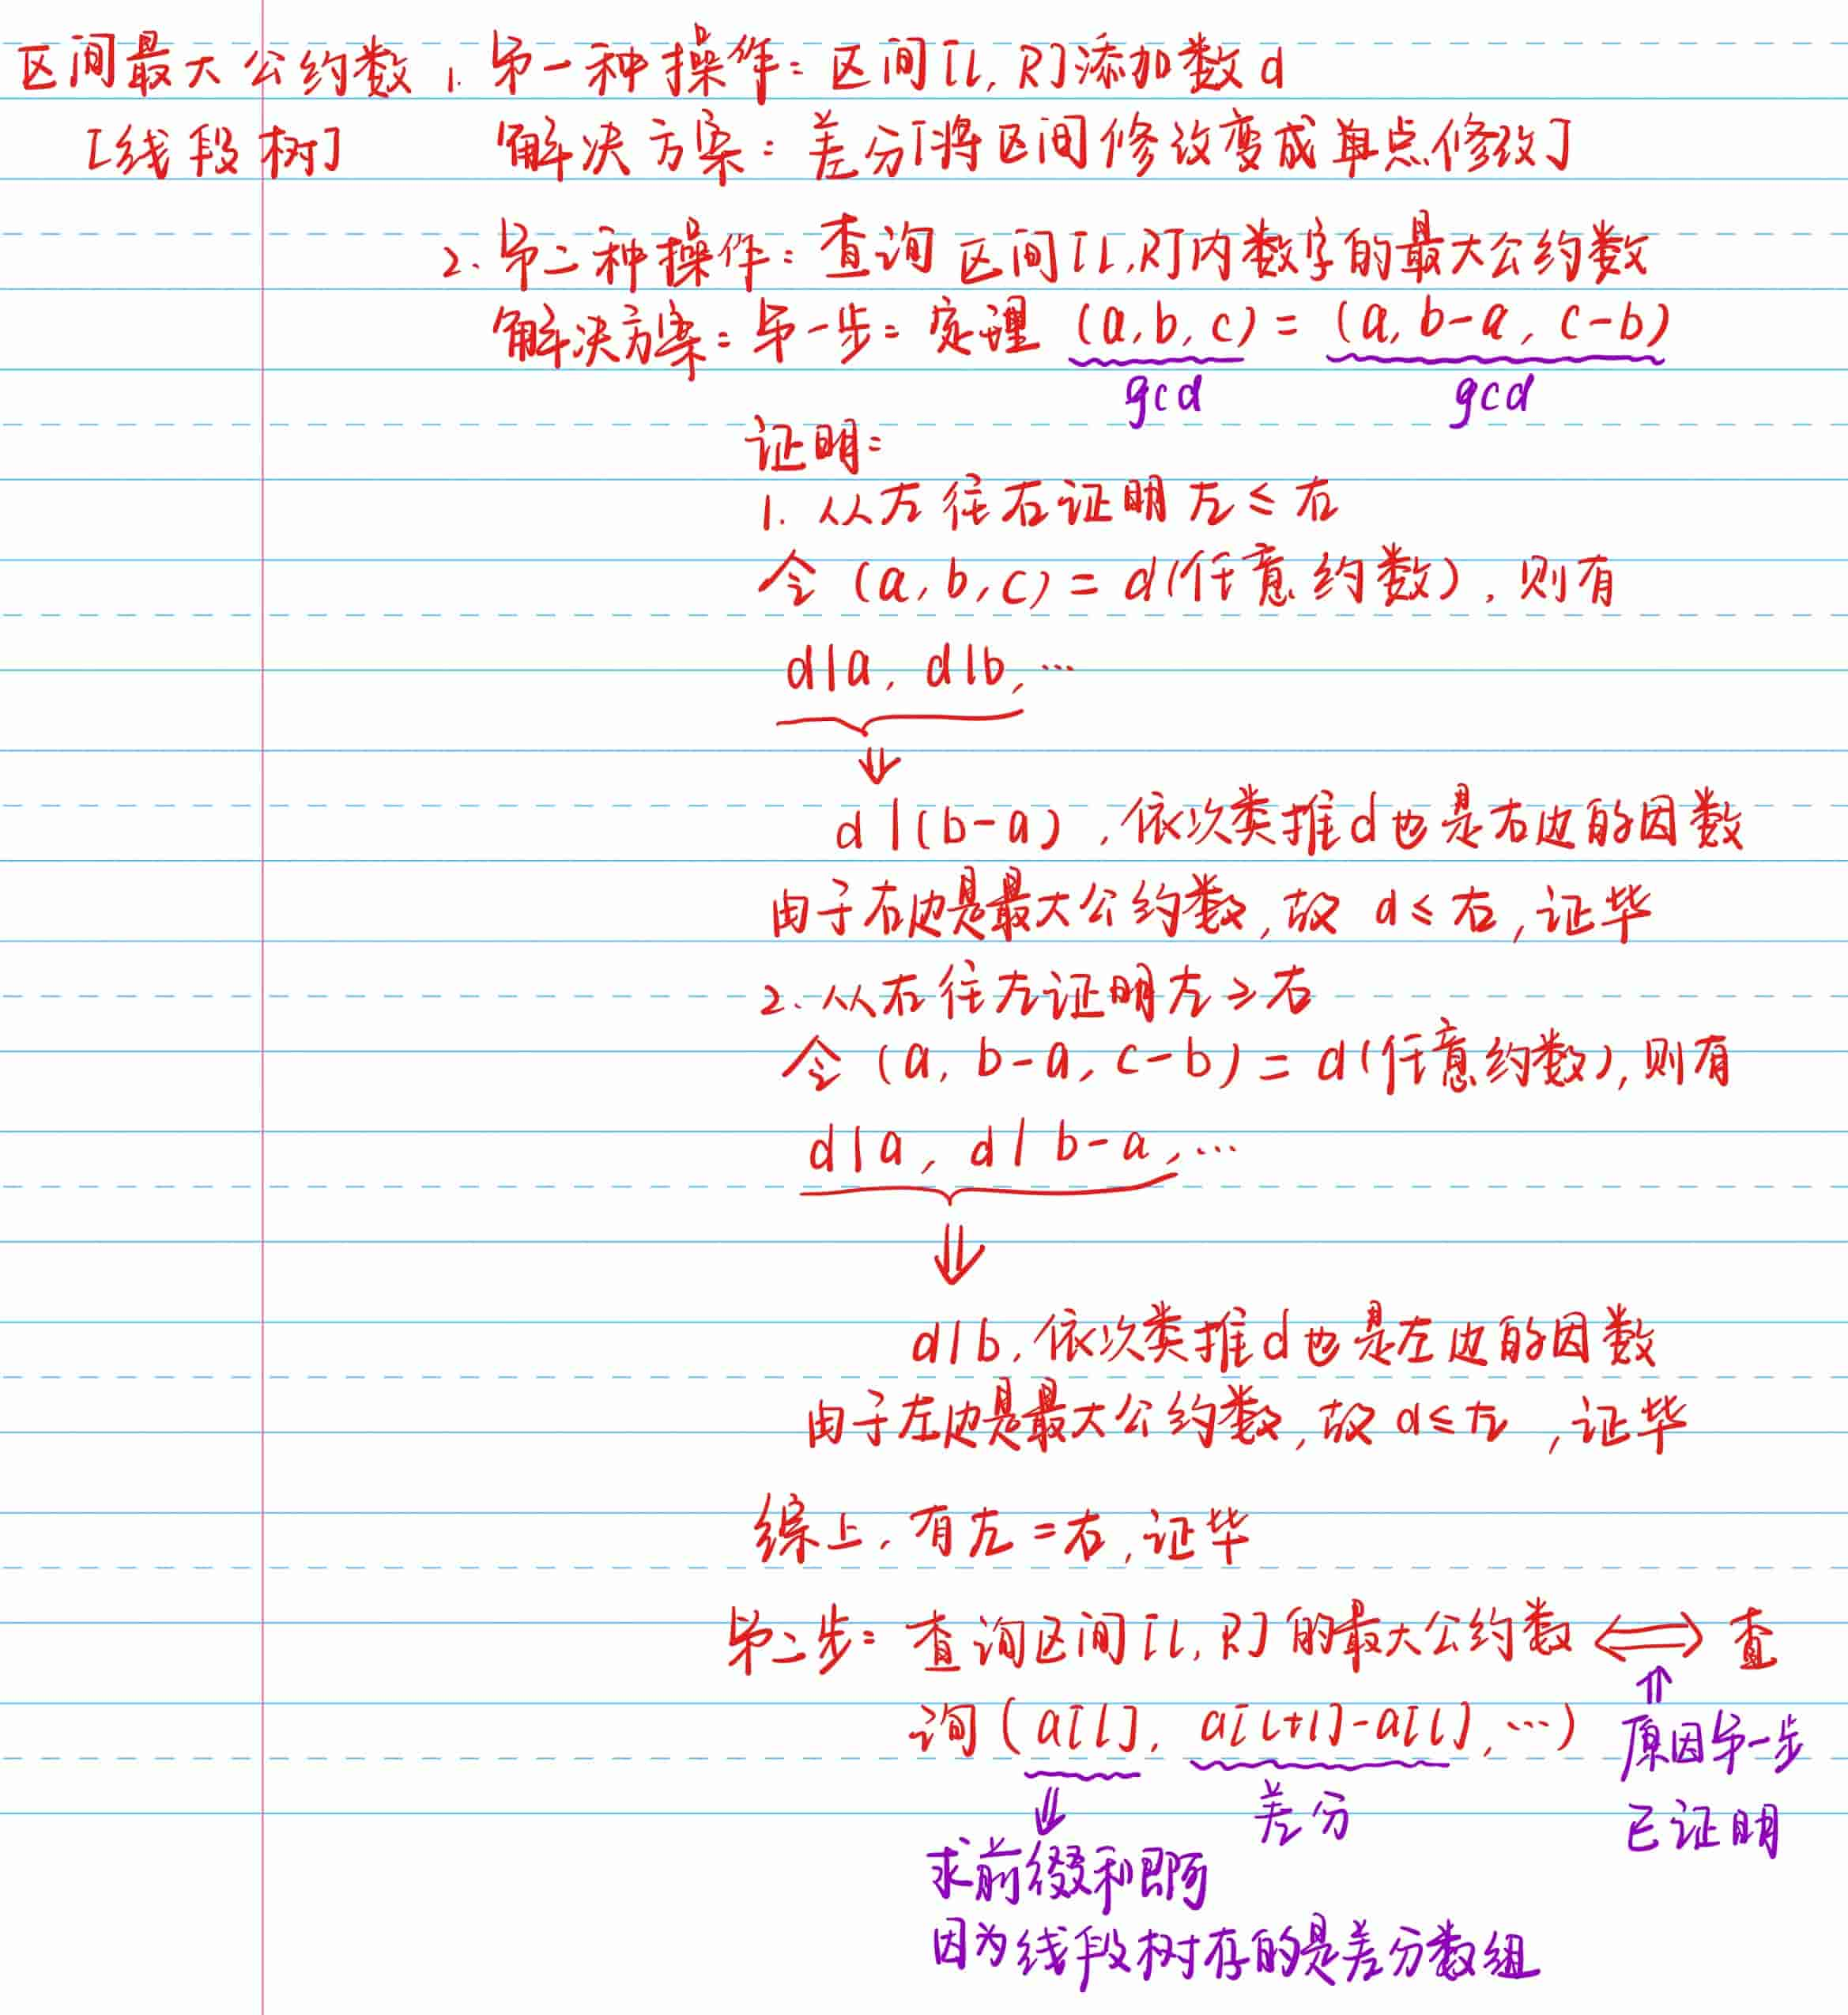 区间最大公约数 1. 第一种操作：区间[L, R]添加数d
[线段树] 解决方案：差分[将区间修改变成单点修改]
2. 第二种操作：查询区间[L,R]内数字的最大公约数
解决方案：第一步：定理 (a,b,c) = (a, b-a, c-b)
gcd gcd
证明：
1. 从左往右证明左≤右
令 (a,b,c) = d(任意约数)，则有
d|a, d|b, …
⇓
d|(b-a)，依次类推d也是右边的因数
由于右边是最大公约数,故 d≤右,证毕
2. 从右往左证明左≥右
令 (a, b-a, c-b) = d(任意约数),则有
d|a, d|b-a, …
⇓
d|b, 依次类推d也是左边的因数
由于左边是最大公约数,故 d≤左 ,证毕
综上，有左=右,证毕
第二步：查询区间[L, R]的最大公约数 ⟺ 查
询(a[L], a[L+1]-a[L], …)
⇑
原因第一步
已证明
⇓ 差分
求前缀和即可
因为线段树存的是差分数组